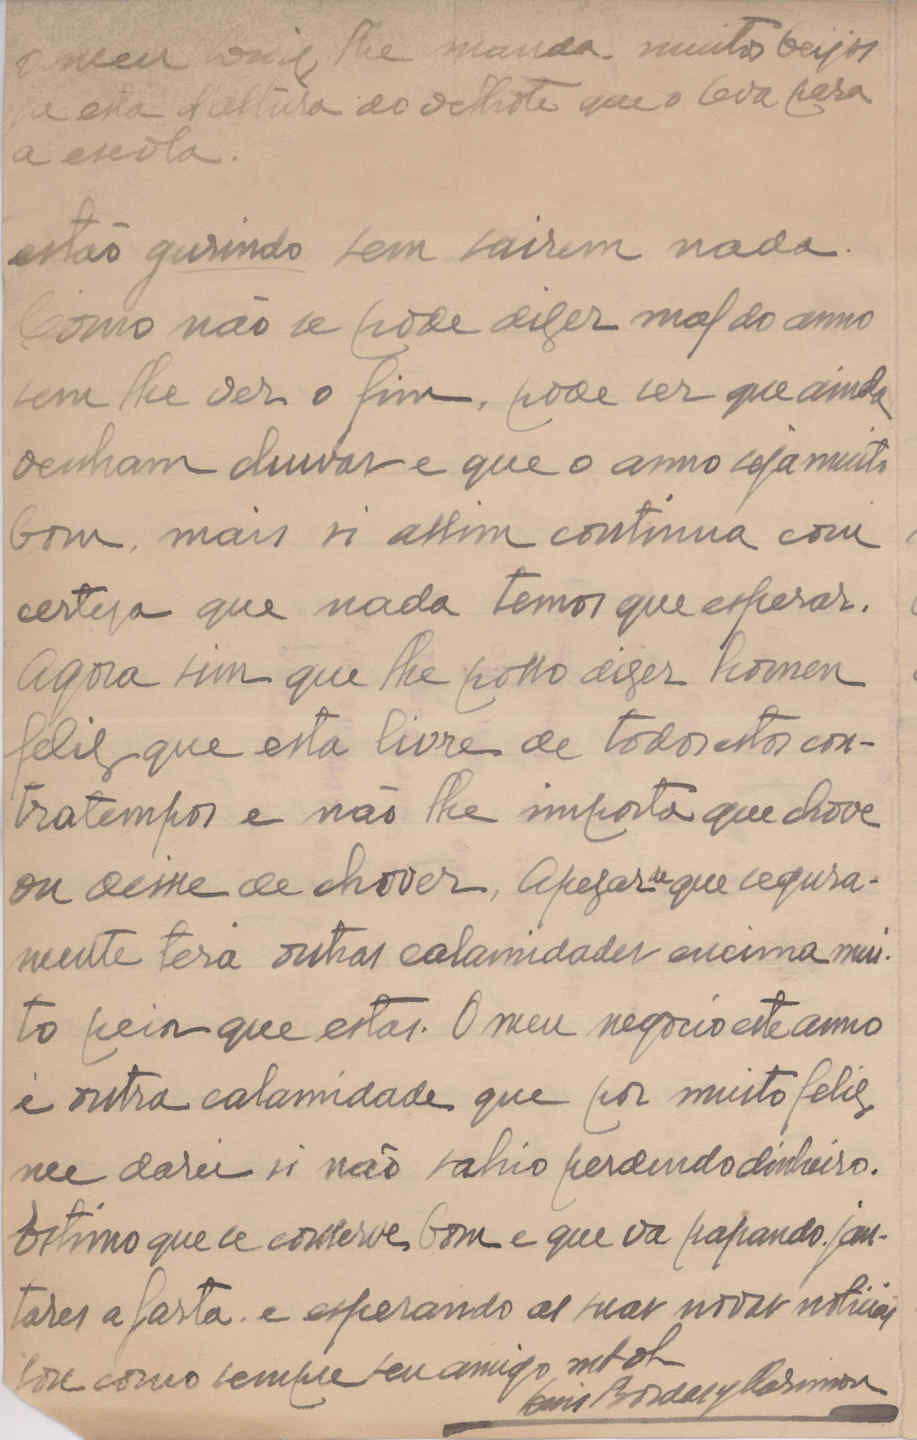 o meu Luiz, lhe manda muitos beijos
ja esta d'altura do velhote que o leva pera
a escóla.
estão gurindo sem sairem nada.
Como não se póde dizer mal do anno
sem lhe ver o fim, póde ser que ainda
venham chuvas e que o anno seja muito
bom, mais si assim continua com
certeza que nada temos que esperar.
Agora sim que lhe posso dizer homen
feliz, que esta livre de todos estos con-
tratempos e não lhe importa que chove
ou deixe de chover, Apezar de que segura-
mente terá outras calamidades encima mui-
to peior que estas. O meu negocio este anno
é outra calamidade que por muito feliz
me darei si não sahio perdendo dinheiro.
Estimo que se conserve bom e que va papando jan-
tares a farta e esperando as suas novas noticias
sou como sempre seu amigo
Luis Bordas y